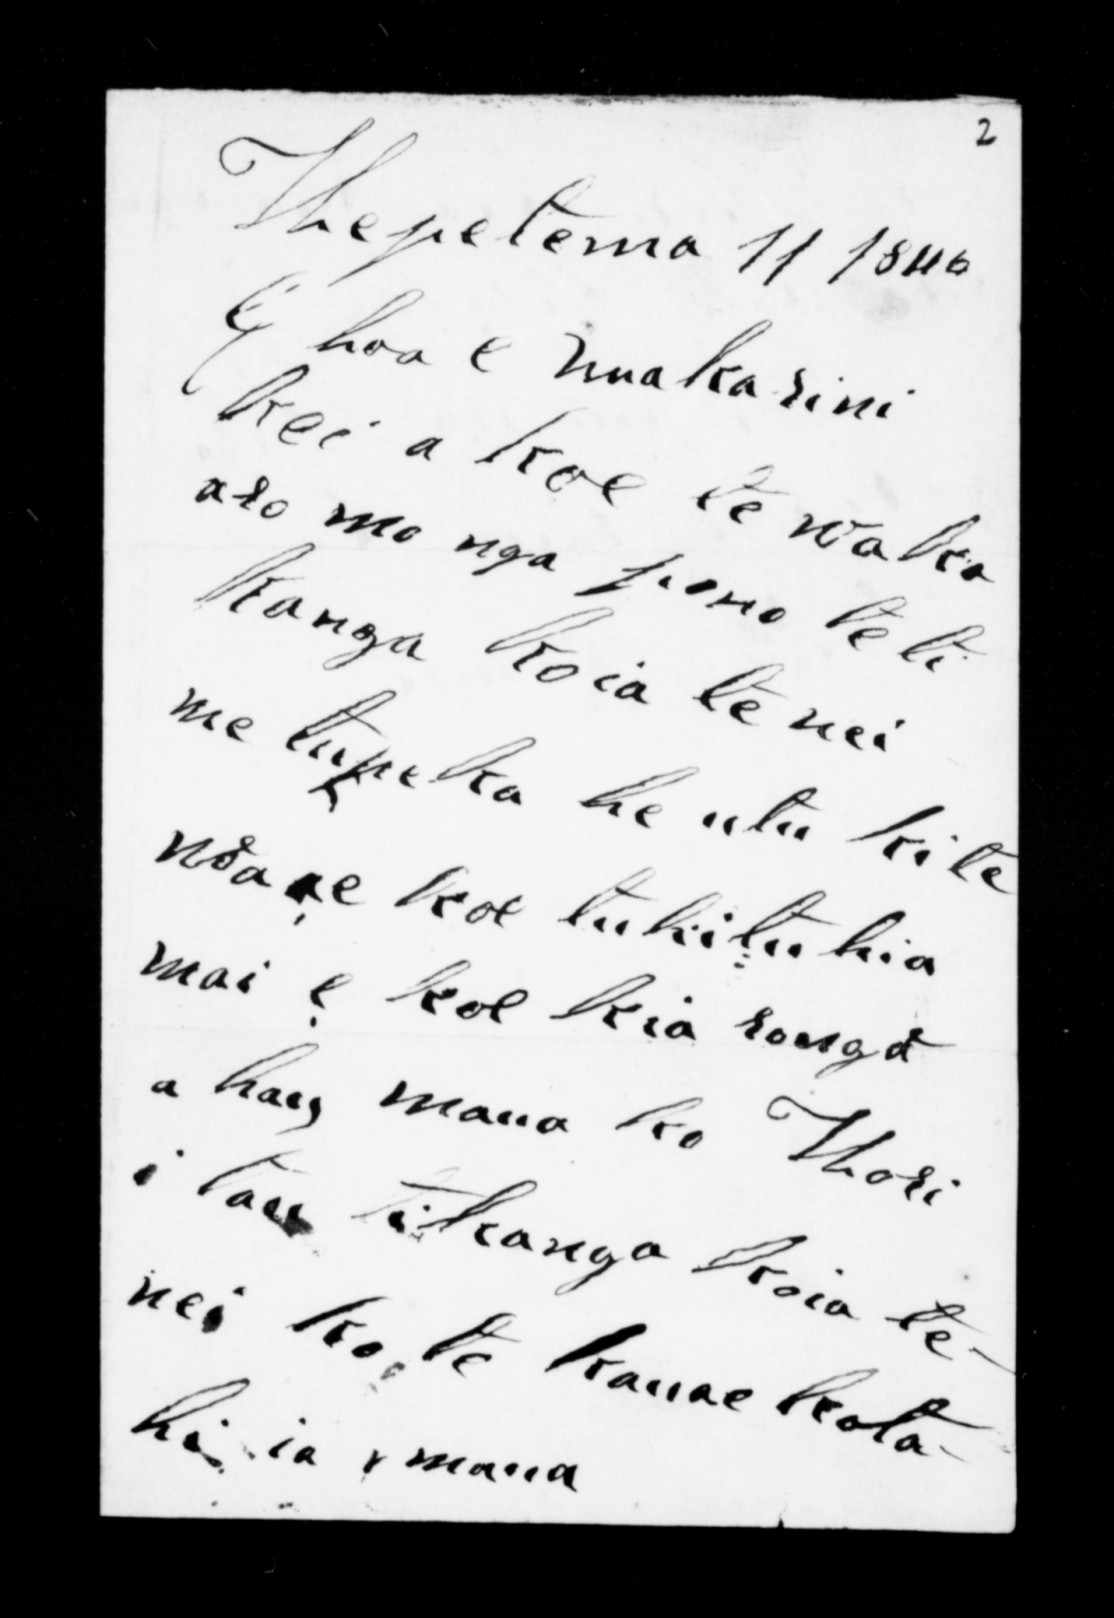 2
Thepetema 11 1846
E hoa e makarini
kei a koe te waka
aro mo nga pono te ti
kanga koia te nei
me tupeka he utu kite
koe tukituhia
mai e koe kia ronga
a hau maua ko Thori
i tau tikanga koia te-
nei ko te kauae kota-
hi ia maua